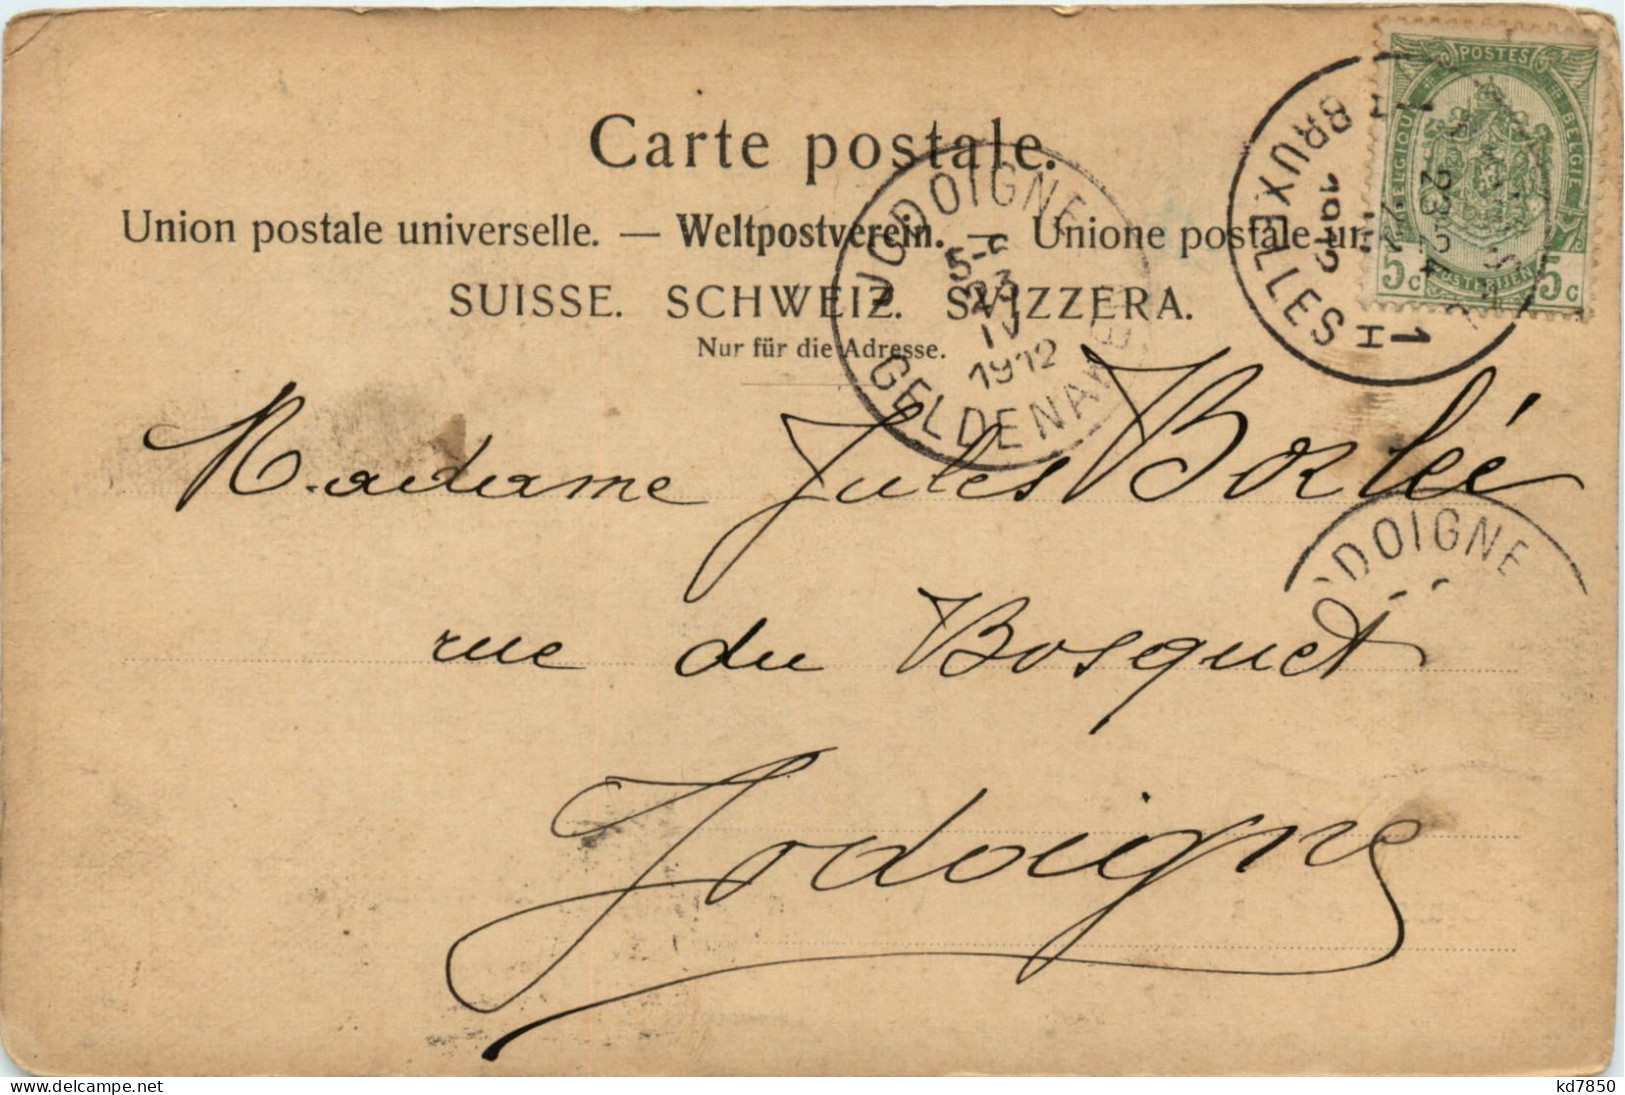 Carte postale.
Union postale universelle. — Weltpostverein. — Unione postale un
SUISSE. SCHWEIZ. SVIZZERA.
Nur für die Adresse.
POSTES
BELGIQUE
BELGIE
POSTERIJEN
5c 5c
BRUXELLES
1912
1
JODOIGNE
23
IV
1912
GELDENAKEN
Madame Jules Borlée
DOIGNE
rue du Bosquet
Jodoigne
www.delcampe.net
kd7850